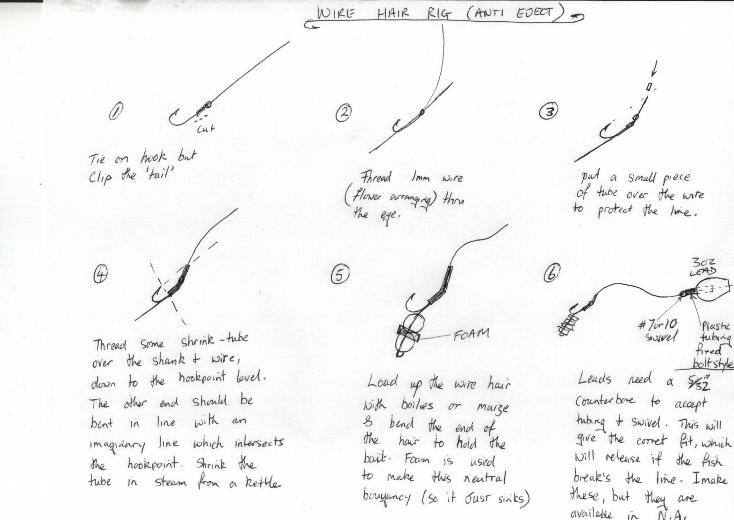 WIRE HAIR RIG (ANTI EJECT)
①
Cut
Tie on hook but
Clip the 'tail'
②
Thread 1mm wire
(flower arranging) thru
the eye.
③
put a small piece
of tube over the wire
to protect the line.
④
Thread some shrink-tube
over the shank & wire,
down to the hookpoint level.
The other end should be
bent in line with an
imaginary line which intersects
the hookpoint. Shrink the
tube in steam from a kettle.
⑤
FOAM
Load up the wire hair
with boilies or maize
& bend the end of
the hair to hold the
bait. Foam is used
to make this neutral
bouyancy (so it Just sinks)
⑥
3oz
LEAD
#7or10
Swivel
Plastic
tubing
fixed
boltstyle
Leads need a 5/32"
Counterbore to accept
tubing & swivel. This will
give the corret fit, which
will release if the fish
break's the line. I make
these, but they are
available in N.A.